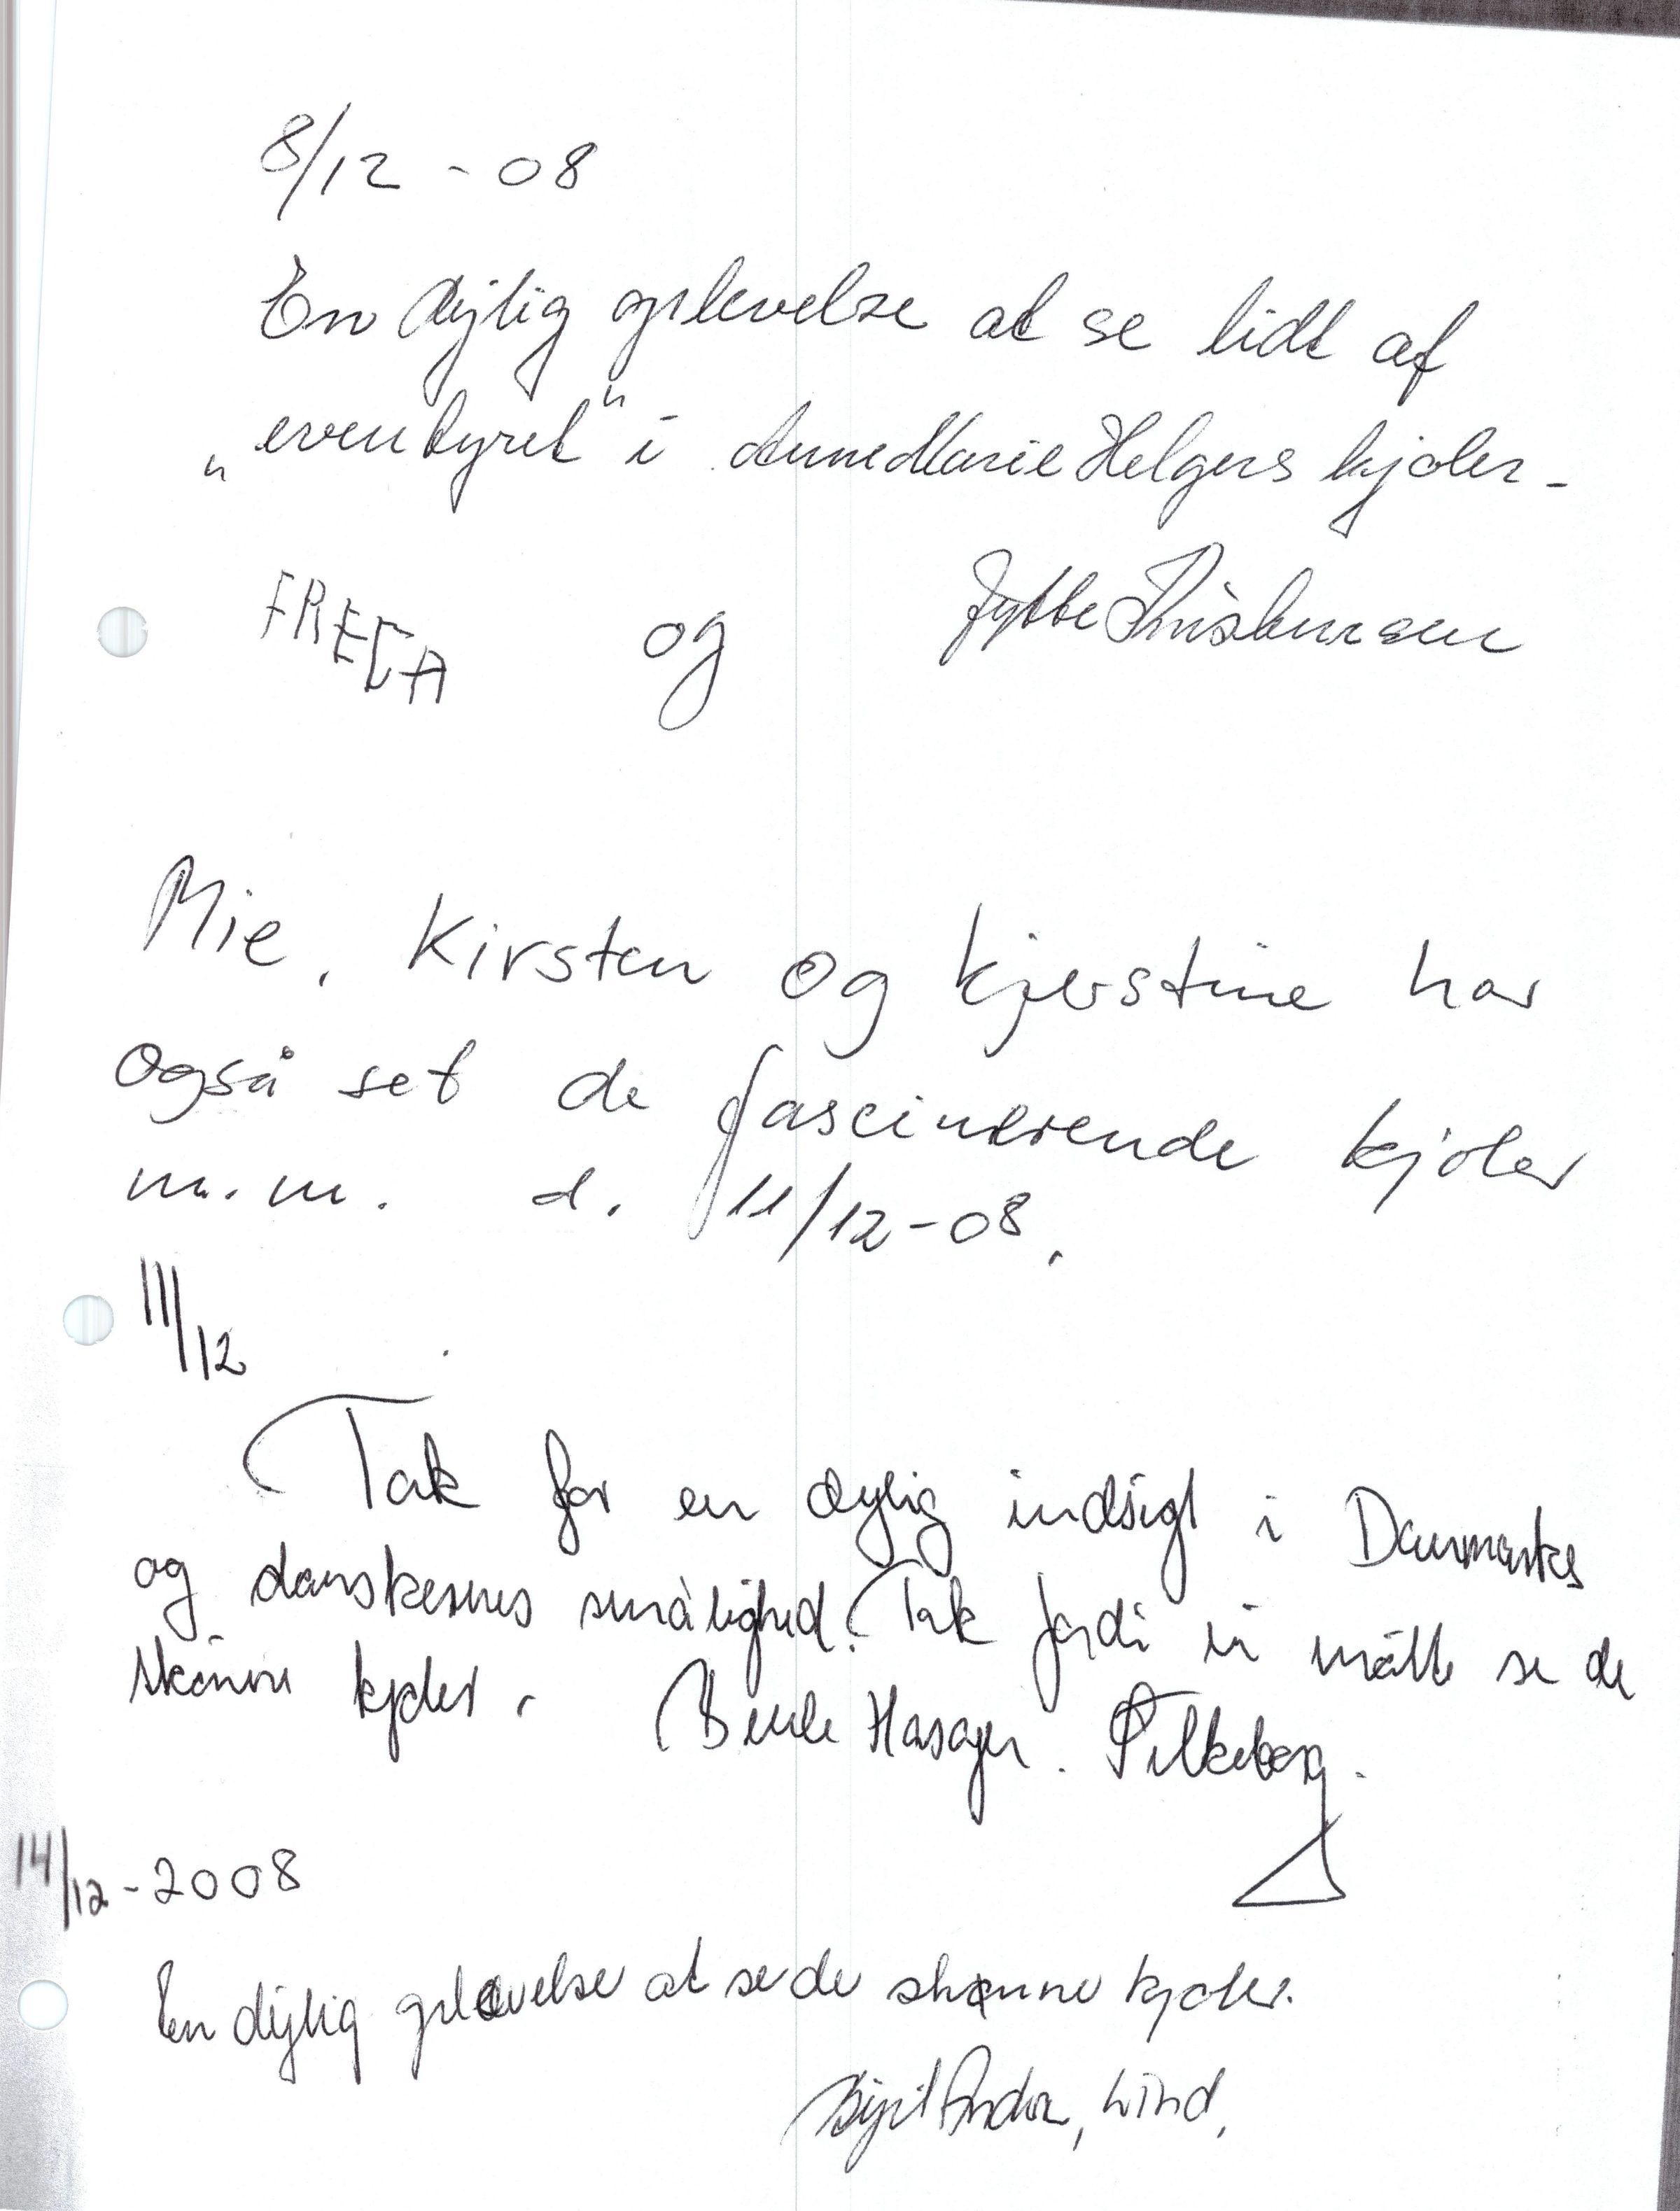 8/12 - 08
En dejlig oplevelse at se lidt af
"eventyret" i AnneMarie Helgers kjoler -
FREDA og Jytte Christensen
Mie, Kirsten og Kjerstine har
også set de fascinerende kjoler
m.m. d. 11/12-08.
11/12
Tak for en dejlig indsigt i Danmarks
og danskernes smålighed. Tak fordi vi måtte se de
skønne kjoler. Bente Hasager.
14/12-2008
En dejlig oplevelse at se de skønne kjoler.
Lind.